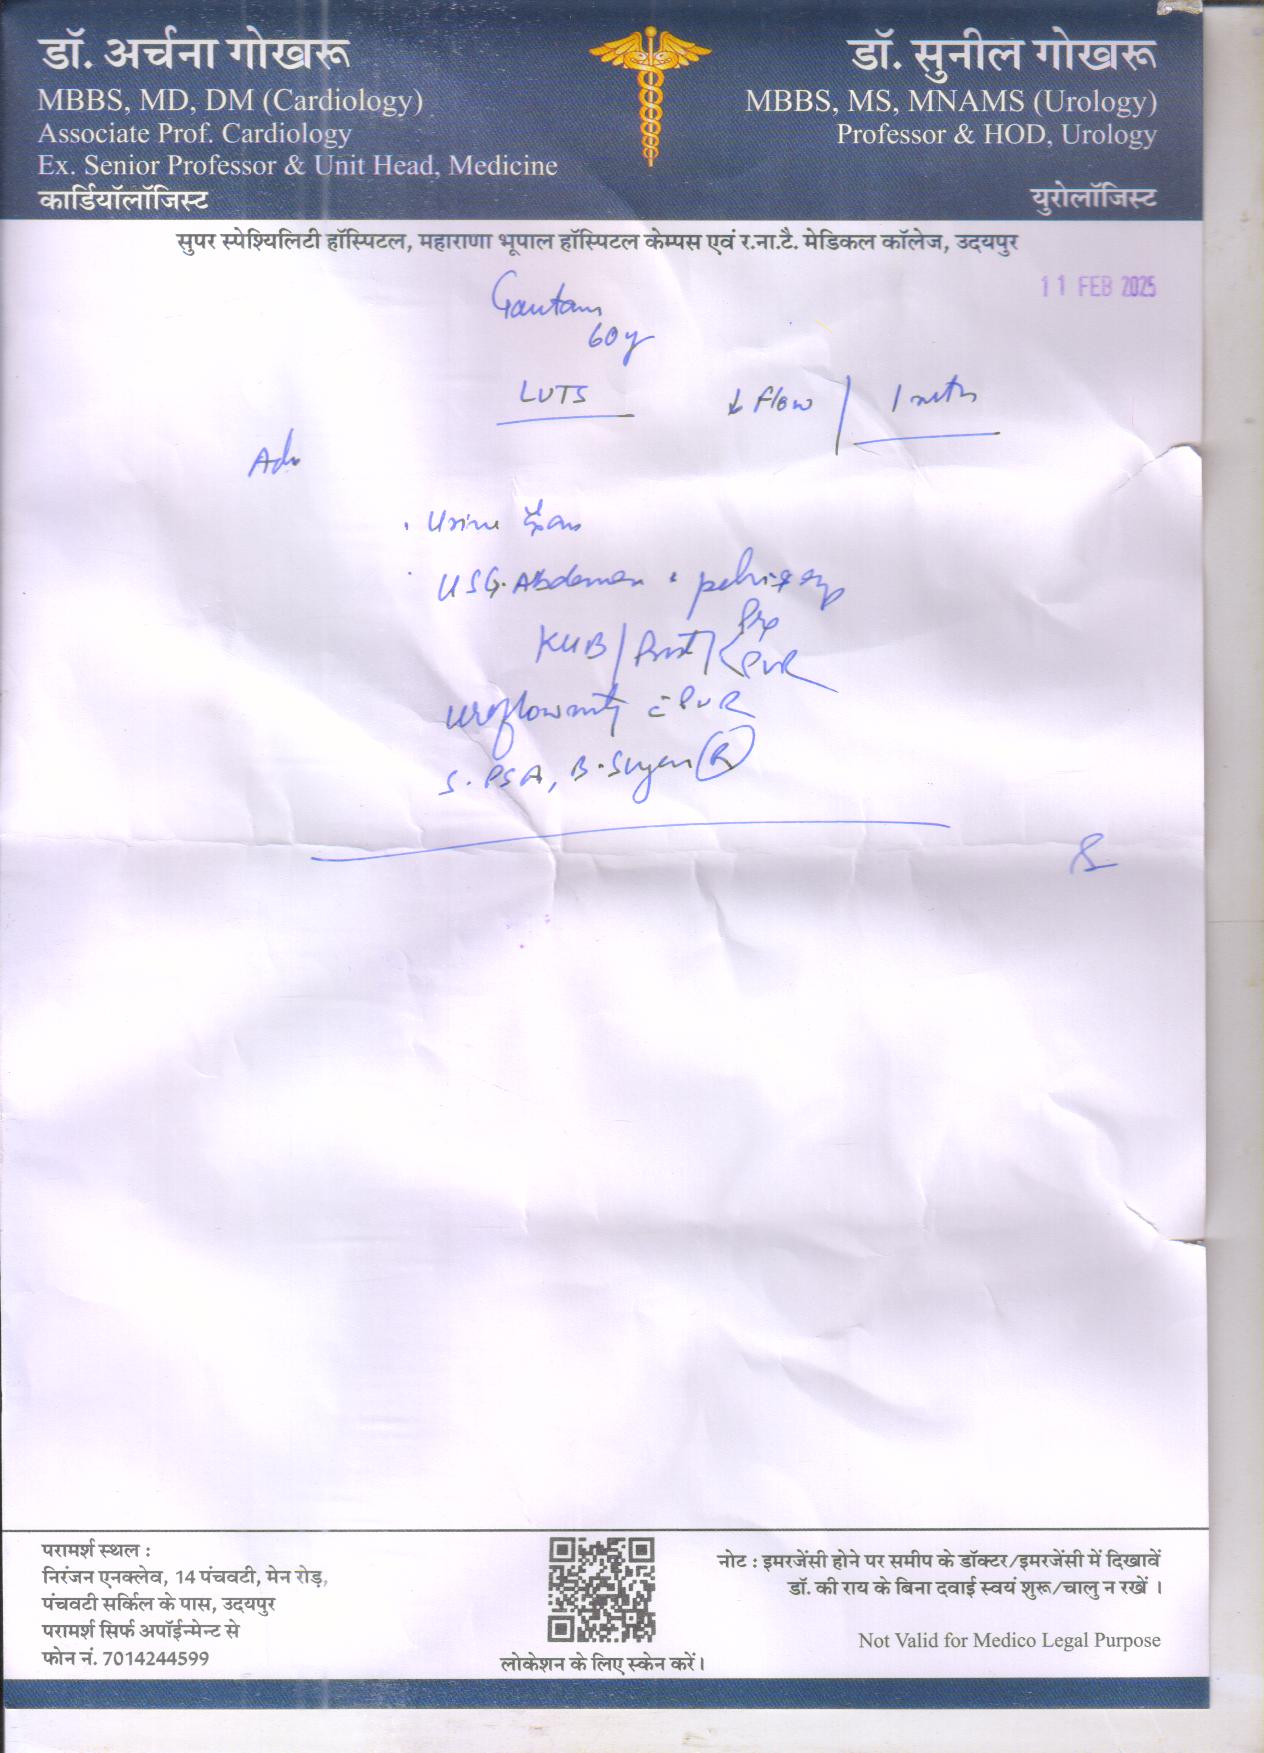 डॉ. अर्चना गोखरू
MBBS, MD, DM (Cardiology)
Associate Prof. Cardiology
Ex. Senior Professor & Unit Head, Medicine
कार्डियॉलॉजिस्ट
डॉ. सुनील गोखरू
MBBS, MS, MNAMS (Urology)
Professor & HOD, Urology
युरोलॉजिस्ट
सुपर स्पेश्यिलिटी हॉस्पिटल, महाराणा भूपाल हॉस्पिटल केम्पस एवं र.ना.टै. मेडिकल कॉलेज, उदयपुर
11 FEB 2025
Gautam
60y
LUTS ↓ Flow / 1 mth
Adv
Urine
USG. Abdomen
KUB / Prost / < Pre
PVR
uroflowmetry c̄ PVR
S. PSA, B. Sugar (R)
परामर्श स्थल :
निरंजन एनक्लेव, 14 पंचवटी, मेन रोड़,
पंचवटी सर्किल के पास, उदयपुर
परामर्श सिर्फ अपॉईन्मेन्ट से
फोन नं. 7014244599
लोकेशन के लिए स्केन करें।
नोट : इमरजेंसी होने पर समीप के डॉक्टर/इमरजेंसी में दिखावें
डॉ. की राय के बिना दवाई स्वयं शुरू/चालु न रखें ।
Not Valid for Medico Legal Purpose